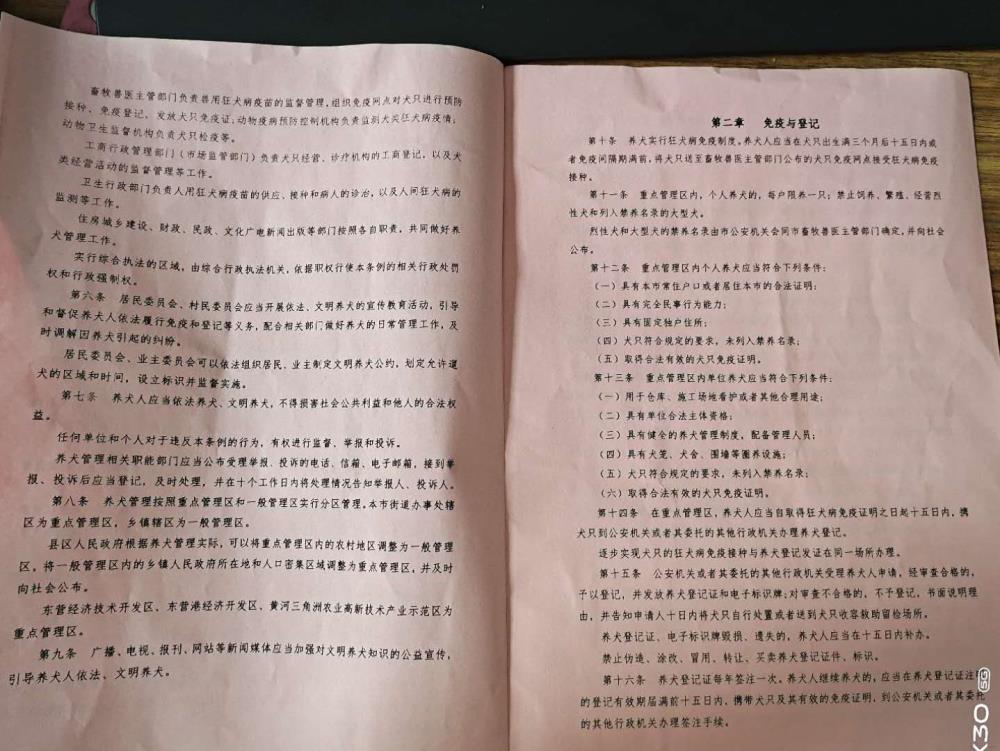 畜牧兽医主管部门负责兽用狂犬病疫苗的监督管理,组织免疫网点对犬只进行预防
接种、免疫登记、发放犬只免疫证;动物疫病预防控制机构负责监测犬类狂犬病疫情;
动物卫生监督机构负责犬只检疫等。
工商行政管理部门(市场监管部门)负责犬只经营、诊疗机构的工商登记,以及犬
类经营活动的监督管理等工作。
卫生行政部门负责人用狂犬病疫苗的供应、接种和病人的诊治,以及人间狂犬病的
监测等工作。
住房城乡建设、财政、民政、文化广电新闻出版等部门按照各自职责,共同做好养
犬管理工作。
实行综合执法的区域,由综合行政执法机关,依据职权行使本条例的相关行政处罚
权和行政强制权。
第六条 居民委员会、村民委员会应当开展依法、文明养犬的宣传教育活动,引导
和督促养犬人依法履行免疫和登记等义务,配合相关部门做好养犬的日常管理工作,及
时调解因养犬引起的纠纷。
居民委员会、业主委员会可以依法组织居民、业主制定文明养犬公约,划定允许遛
犬的区域和时间,设立标识并监督实施。
第七条 养犬人应当依法养犬、文明养犬,不得损害社会公共利益和他人的合法权
益。
任何单位和个人对于违反本条例的行为,有权进行监督、举报和投诉。
养犬管理相关职能部门应当公布受理举报、投诉的电话、信箱、电子邮箱,接到举
报、投诉后应当登记,及时处理,并在十个工作日内将处理情况告知举报人、投诉人。
第八条 养犬管理按照重点管理区和一般管理区实行分区管理。本市街道办事处辖
区为重点管理区,乡镇辖区为一般管理区。
县区人民政府根据养犬管理实际,可以将重点管理区内的农村地区调整为一般管理
区,将一般管理区内的乡镇人民政府所在地和人口密集区域调整为重点管理区,并及时
向社会公布。
东营经济技术开发区、东营港经济开发区、黄河三角洲农业高新技术产业示范区为
重点管理区。
第九条 广播、电视、报刊、网站等新闻媒体应当加强对文明养犬知识的公益宣传,
引导养犬人依法、文明养犬。
第二章 免疫与登记
第十条 养犬实行狂犬病免疫制度。养犬人应当在犬只出生满三个月后十五日内或
者免疫间隔期满前,将犬只送至畜牧兽医主管部门公布的犬只免疫网点接受狂犬病免疫
接种。
第十一条 重点管理区内,个人养犬的,每户限养一只;禁止饲养、繁殖、经营烈
性犬和列入禁养名录的大型犬。
烈性犬和大型犬的禁养名录由市公安机关会同市畜牧兽医主管部门确定,并向社会
公布。
第十二条 重点管理区内个人养犬应当符合下列条件:
(一)具有本市常住户口或者居住本市的合法证明;
(二)具有完全民事行为能力;
(三)具有固定独户住所;
(四)犬只符合规定的要求,未列入禁养名录;
(五)取得合法有效的犬只免疫证明。
第十三条 重点管理区内单位养犬应当符合下列条件:
(一)用于仓库、施工场地看护或者其他合理用途;
(二)具有单位合法主体资格;
(三)具有健全的养犬管理制度,配备管理人员;
(四)具有犬笼、犬舍、围墙等圈养设施;
(五)犬只符合规定的要求,未列入禁养名录;
(六)取得合法有效的犬只免疫证明。
第十四条 在重点管理区,养犬人应当自取得狂犬病免疫证明之日起十五日内,携
犬只到公安机关或者其委托的其他行政机关办理养犬登记。
逐步实现犬只的狂犬病免疫接种与养犬登记发证在同一场所办理。
第十五条 公安机关或者其委托的其他行政机关受理养犬人申请,经审查合格的,
予以登记,并发放养犬登记证和电子标识牌;对审查不合格的,不予登记,书面说明理
由,并告知申请人十日内将犬只自行处置或者送到犬只收容救助留检场所。
养犬登记证、电子标识牌毁损、遗失的,养犬人应当在十五日内补办。
禁止伪造、涂改、冒用、转让、买卖养犬登记证件、标识。
第十六条 养犬登记证每年签注一次。养犬人继续养犬的,应当在养犬登记证注明
的登记有效期届满前十五日内,携带犬只及其有效的免疫证明,到公安机关或者其委托
的其他行政机关办理签注手续。
K30 5G